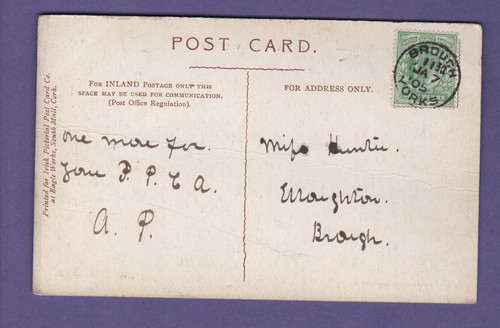 POST CARD.
FOR INLAND POSTAGE ONLY THIS
SPACE MAY BE USED FOR COMMUNICATION.
(Post Office Regulation).
FOR ADDRESS ONLY.
Printed for Irish Pictorial Post Card Co.
at Eagle Works, South Mall, Cork.
BROUGH
JA 7
05
YORKS
one more for
your P. P. C A.
A. P.
Miss Hunter.
Elloughton.
Brough.